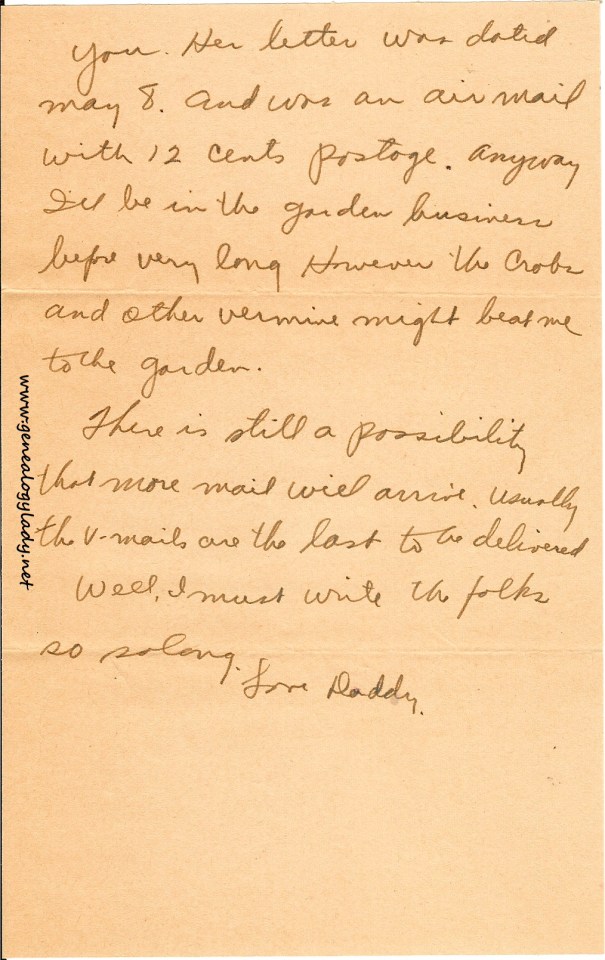 you. Her letter was dated
may 8. and was an air mail
with 12 cents postage. Anyway
I'll be in the garden business
before very long However the Crabs
and other vermine might beat me
to the garden.
There is still a possibility
that more mail will arrive. Usually
the V-mails are the last to be delivered
Well, I must write the folks
so solong.
Love Daddy.
www.genealogylady.net